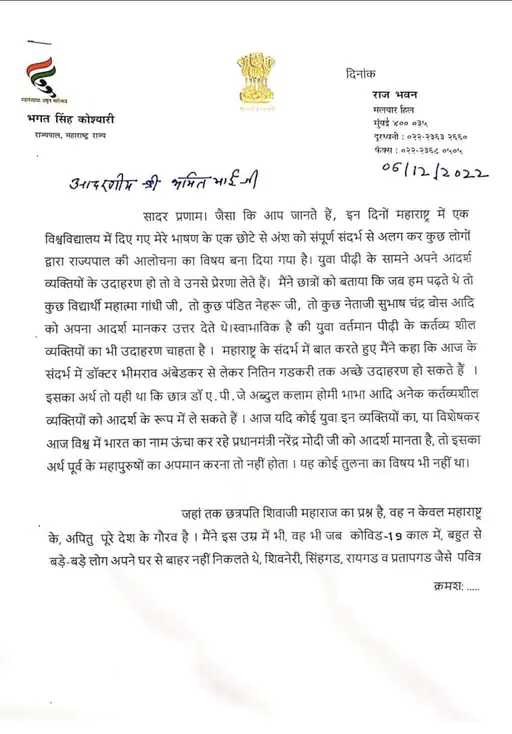 आज़ादी का अमृत महोत्सव
भगत सिंह कोश्यारी
राज्यपाल, महाराष्ट्र राज्य
दिनांक
राज भवन
मलबार हिल
मुंबई ४०० ०३५
दूरध्वनी : ०२२-२३६३ २६६०
फॅक्स : ०२२-२३६८ ०५०५
06/12/2022
आदरणीय श्री अमित भाई जी
सादर प्रणाम। जैसा कि आप जानते हैं, इन दिनों महाराष्ट्र में एक
विश्वविद्यालय में दिए गए मेरे भाषण के एक छोटे से अंश को संपूर्ण संदर्भ से अलग कर कुछ लोगों
द्वारा राज्यपाल की आलोचना का विषय बना दिया गया है। युवा पीढ़ी के सामने अपने आदर्श
व्यक्तियों के उदाहरण हो तो वे उनसे प्रेरणा लेते हैं। मैंने छात्रों को बताया कि जब हम पढ़ते थे तो
कुछ विद्यार्थी महात्मा गांधी जी, तो कुछ पंडित नेहरू जी, तो कुछ नेताजी सुभाष चंद्र बोस आदि
को अपना आदर्श मानकर उत्तर देते थे।स्वाभाविक है की युवा वर्तमान पीढ़ी के कर्तव्य शील
व्यक्तियों का भी उदाहरण चाहता है । महाराष्ट्र के संदर्भ में बात करते हुए मैंने कहा कि आज के
संदर्भ में डॉक्टर भीमराव अंबेडकर से लेकर नितिन गडकरी तक अच्छे उदाहरण हो सकते हैं ।
इसका अर्थ तो यही था कि छात्र डॉ ए.पी.जे अब्दुल कलाम होमी भाभा आदि अनेक कर्तव्यशील
व्यक्तियों को आदर्श के रूप में ले सकते हैं । आज यदि कोई युवा इन व्यक्तियों का, या विशेषकर
आज विश्व में भारत का नाम ऊंचा कर रहे प्रधानमंत्री नरेंद्र मोदी जी को आदर्श मानता है, तो इसका
अर्थ पूर्व के महापुरुषों का अपमान करना तो नहीं होता । यह कोई तुलना का विषय भी नहीं था।
जहां तक छत्रपति शिवाजी महाराज का प्रश्न है, वह न केवल महाराष्ट्र
के, अपितु पूरे देश के गौरव है । मैंने इस उम्र में भी, वह भी जब कोविड-19 काल में, बहुत से
बड़े-बड़े लोग अपने घर से बाहर नहीं निकलते थे, शिवनेरी, सिंहगड, रायगड व प्रतापगड जैसे पवित्र
क्रमश: .....